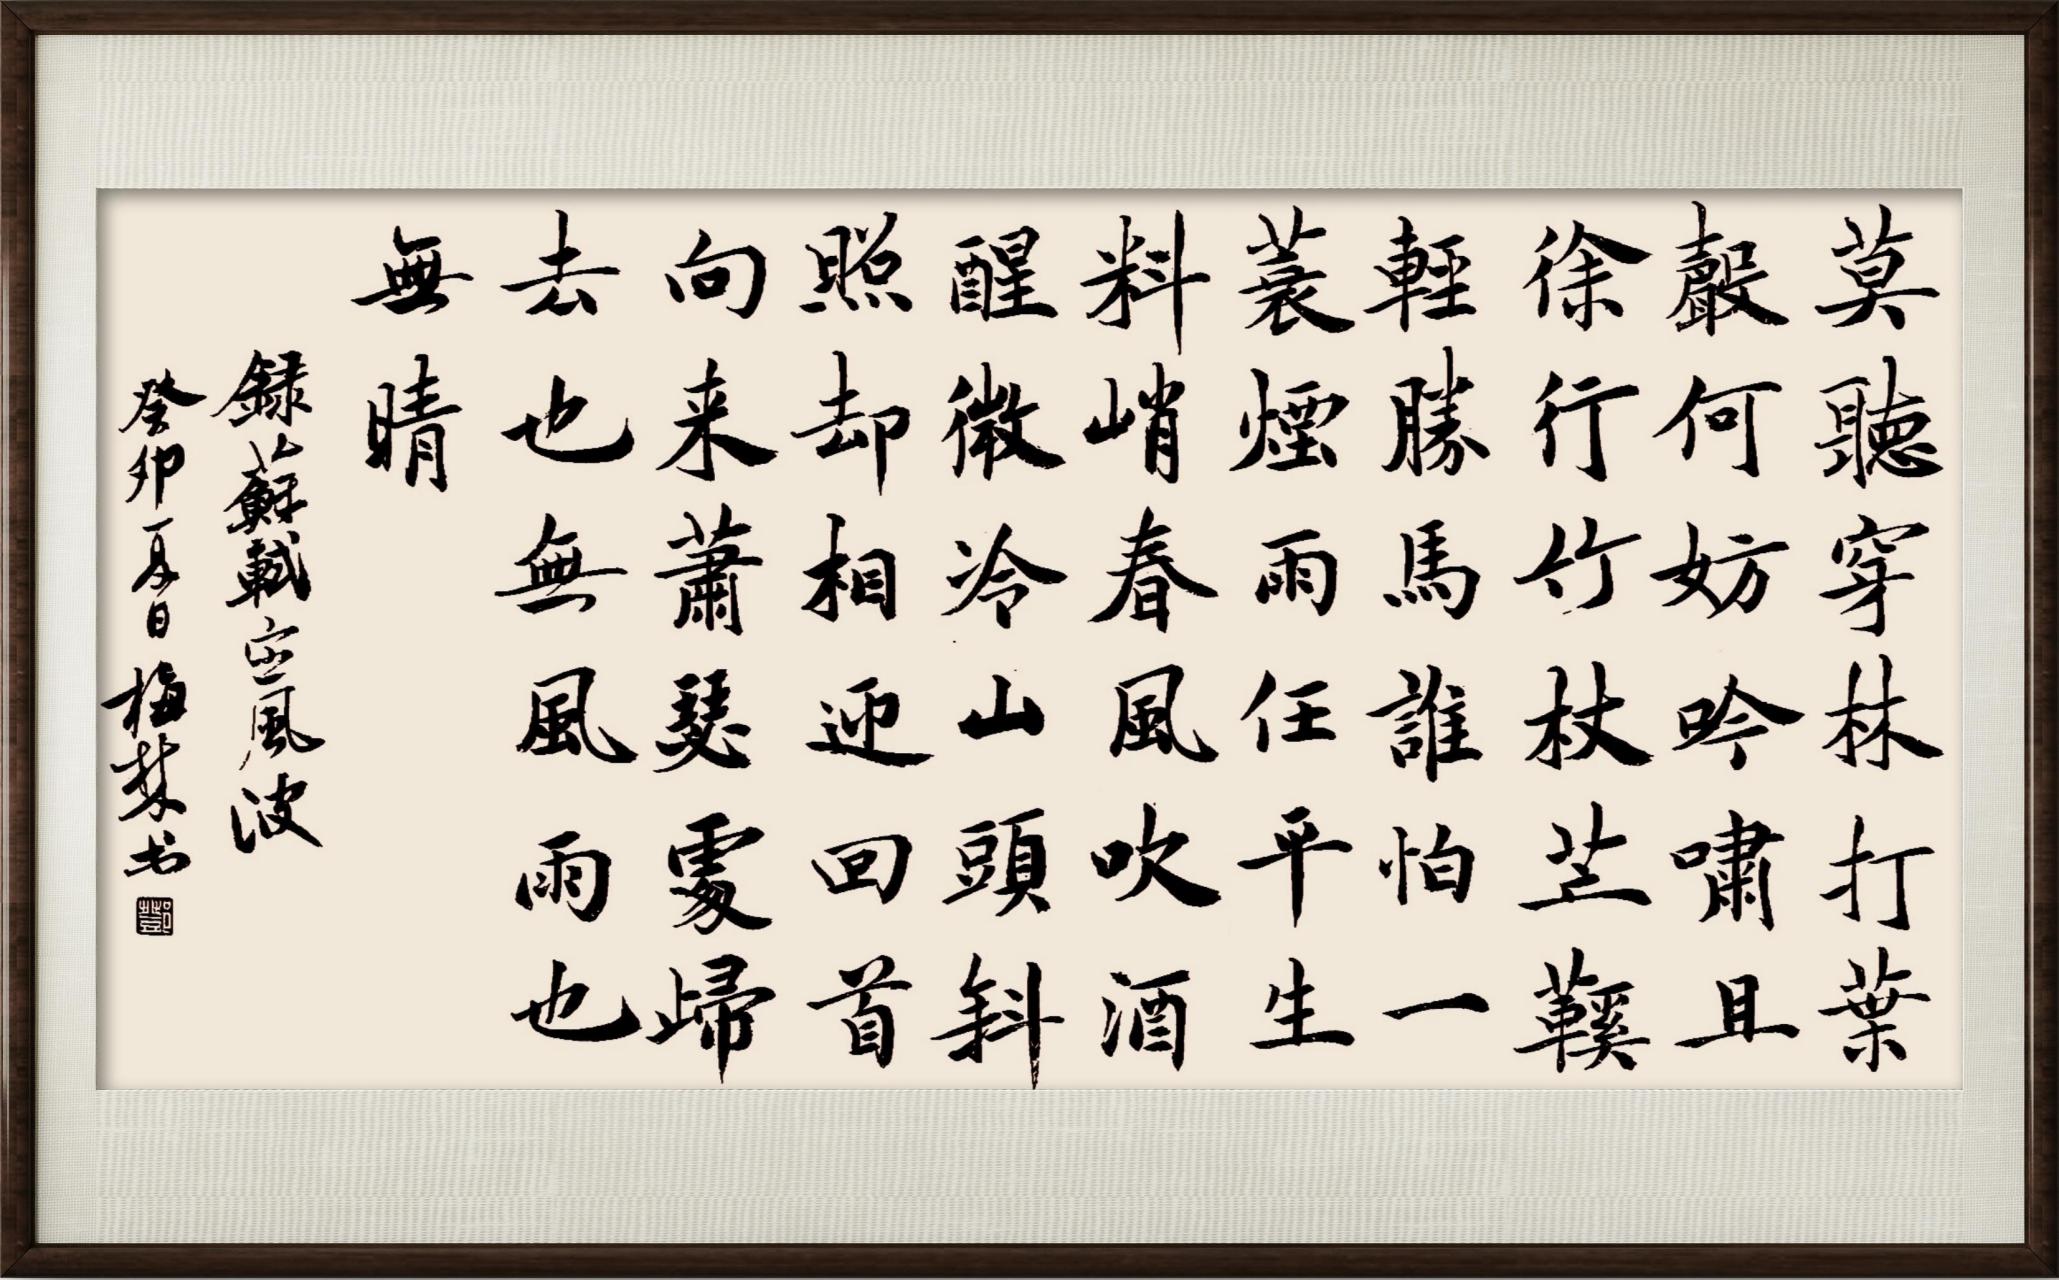 莫聽穿林打葉
聲何妨吟嘯且
徐行竹杖芒鞵
輕勝馬誰怕一
蓑煙雨任平生
料峭春風吹酒
醒微冷山頭斜
照却相迎回首
向来蕭瑟處歸
去也無風雨也
無晴
録蘇軾定風波
癸卯夏日梅书